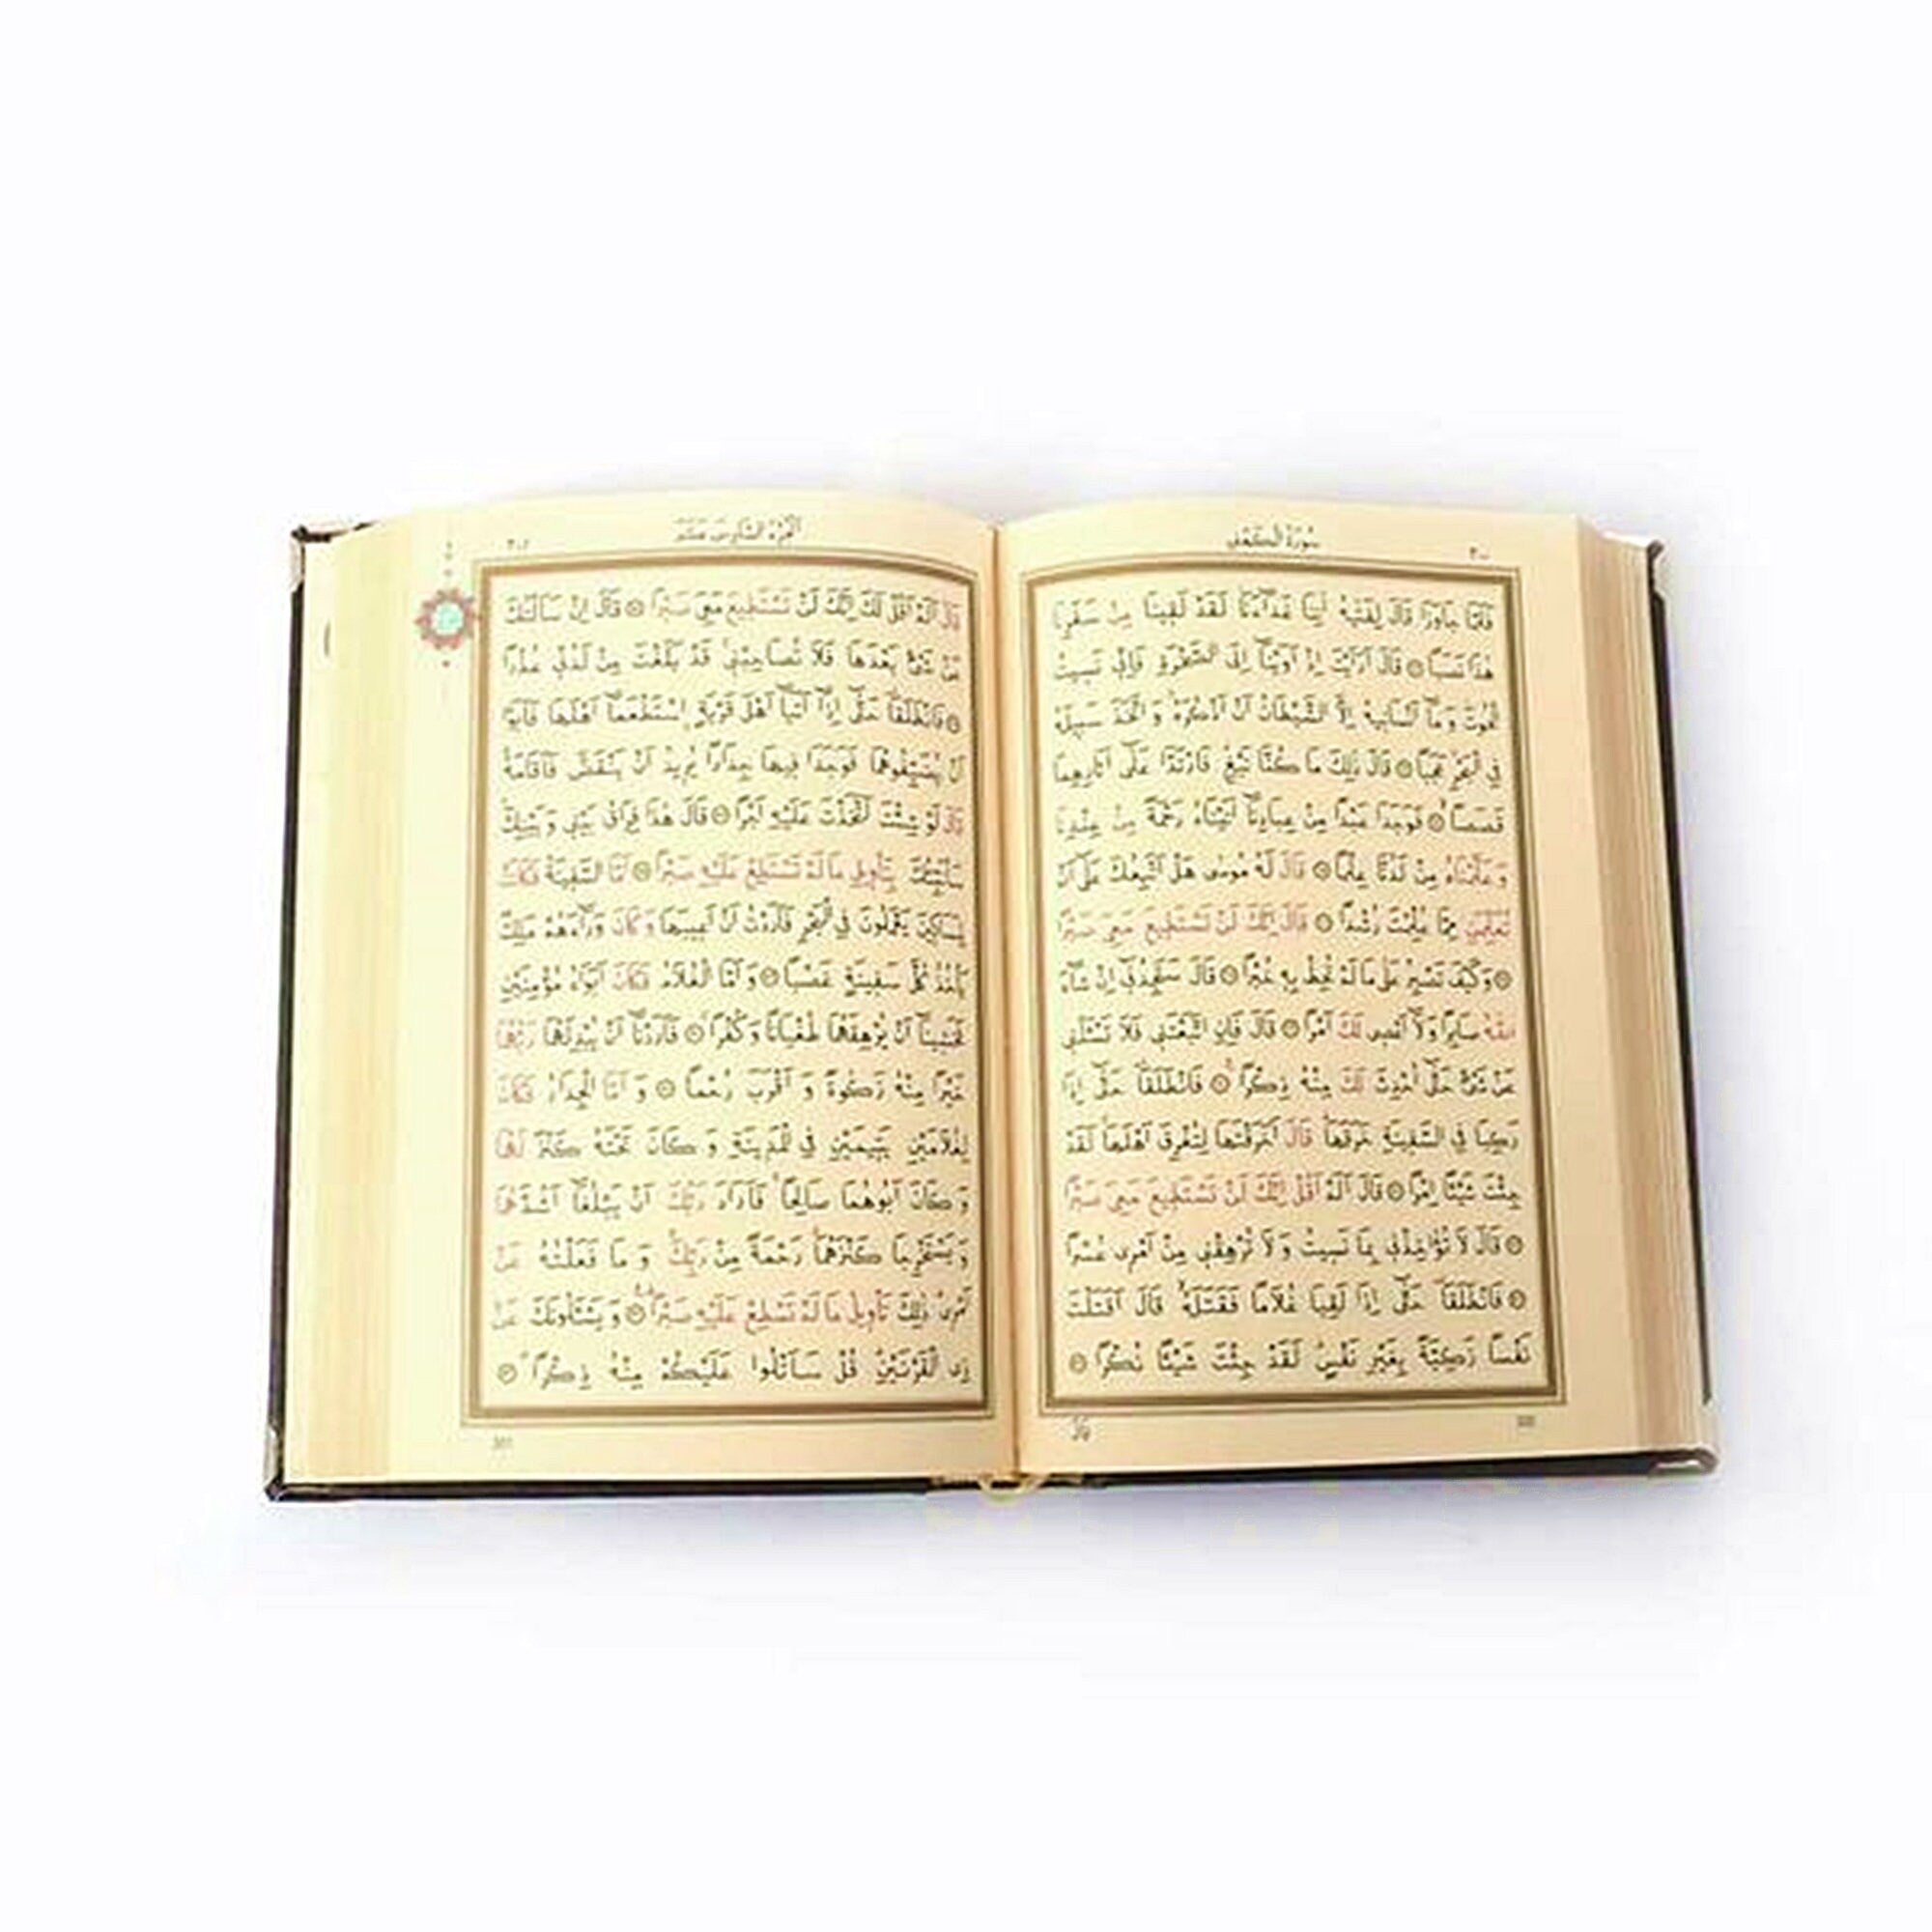 سُورَةُ الْكَهْفِ
٣٠٠
فَلَمَّا جَاوَزَا قَالَ لِفَتٰيهُ اٰتِنَا غَدَٓاءَنَا لَقَدْ لَقٖينَا مِنْ سَفَرِنَا
هٰذَا نَصَبًا ۞ قَالَ اَرَاَيْتَ اِذْ اَوَيْنَٓا اِلَى الصَّخْرَةِ فَاِنّٖي نَسٖيتُ
الْحُوتَ وَمَٓا اَنْسَانٖيهُ اِلَّا الشَّيْطَانُ اَنْ اَذْكُرَهُ وَاتَّخَذَ سَبٖيلَهُ
فِي الْبَحْرِ عَجَبًا ۞ قَالَ ذٰلِكَ مَا كُنَّا نَبْغِ فَارْتَدَّا عَلٰٓى اٰثَارِهِمَا
قَصَصًا ۞ فَوَجَدَا عَبْدًا مِنْ عِبَادِنَٓا اٰتَيْنَاهُ رَحْمَةً مِنْ عِنْدِنَا
وَعَلَّمْنَاهُ مِنْ لَدُنَّا عِلْمًا ۞ قَالَ لَهُ مُوسٰى هَلْ اَتَّبِعُكَ عَلٰٓى اَنْ
تُعَلِّمَنِ مِمَّا عُلِّمْتَ رُشْدًا ۞ قَالَ اِنَّكَ لَنْ تَسْتَطٖيعَ مَعِيَ صَبْرًا
۞ وَكَيْفَ تَصْبِرُ عَلٰى مَا لَمْ تُحِطْ بِهٖ خُبْرًا ۞ قَالَ سَتَجِدُنٖٓي اِنْ شَٓاءَ
اللّٰهُ صَابِرًا وَلَٓا اَعْصٖي لَكَ اَمْرًا ۞ قَالَ فَاِنِ اتَّبَعْتَنٖي فَلَا تَسْـَٔلْنٖي
عَنْ شَيْءٍ حَتّٰٓى اُحْدِثَ لَكَ مِنْهُ ذِكْرًا ۞ فَانْطَلَقَا حَتّٰٓى اِذَا
رَكِبَا فِي السَّفٖينَةِ خَرَقَهَا قَالَ اَخَرَقْتَهَا لِتُغْرِقَ اَهْلَهَا لَقَدْ
جِئْتَ شَيْـًٔا اِمْرًا ۞ قَالَ اَلَمْ اَقُلْ اِنَّكَ لَنْ تَسْتَطٖيعَ مَعِيَ صَبْرًا
۞ قَالَ لَا تُؤَاخِذْنٖي بِمَا نَسٖيتُ وَلَا تُرْهِقْنٖي مِنْ اَمْرٖي عُسْرًا
۞ فَانْطَلَقَا حَتّٰٓى اِذَا لَقِيَا غُلَامًا فَقَتَلَهُ قَالَ اَقَتَلْتَ
نَفْسًا زَكِيَّةً بِغَيْرِ نَفْسٍ لَقَدْ جِئْتَ شَيْـًٔا نُكْرًا ۞
قَالَ
300
اَلْجُزْءُ السَّادِسَ عَشَرَ
٣٠١
قَالَ اَلَمْ اَقُلْ لَكَ اِنَّكَ لَنْ تَسْتَطٖيعَ مَعِيَ صَبْرًا ۞ قَالَ اِنْ سَاَلْتُكَ
عَنْ شَيْءٍ بَعْدَهَا فَلَا تُصَاحِبْنٖي قَدْ بَلَغْتَ مِنْ لَدُنّٖي عُذْرًا
۞ فَانْطَلَقَا حَتّٰٓى اِذَٓا اَتَيَٓا اَهْلَ قَرْيَةٍ اِسْتَطْعَمَٓا اَهْلَهَا فَاَبَوْا
اَنْ يُضَيِّفُوهُمَا فَوَجَدَا فٖيهَا جِدَارًا يُرٖيدُ اَنْ يَنْقَضَّ فَاَقَامَهُ
قَالَ لَوْ شِئْتَ لَتَّخَذْتَ عَلَيْهِ اَجْرًا ۞ قَالَ هٰذَا فِرَاقُ بَيْنٖي وَبَيْنِكَ
سَاُنَبِّئُكَ بِتَاْوٖيلِ مَا لَمْ تَسْتَطِعْ عَلَيْهِ صَبْرًا ۞ اَمَّا السَّفٖينَةُ فَكَانَتْ
لِمَسَاكٖينَ يَعْمَلُونَ فِي الْبَحْرِ فَاَرَدْتُ اَنْ اَعٖيبَهَا وَكَانَ وَرَٓاءَهُمْ مَلِكٌ
يَاْخُذُ كُلَّ سَفٖينَةٍ غَصْبًا ۞ وَاَمَّا الْغُلَامُ فَكَانَ اَبَوَاهُ مُؤْمِنَيْنِ
فَخَشٖينَٓا اَنْ يُرْهِقَهُمَا طُغْيَانًا وَكُفْرًا ۞ فَاَرَدْنَٓا اَنْ يُبْدِلَهُمَا رَبُّهُمَا
خَيْرًا مِنْهُ زَكٰوةً وَاَقْرَبَ رُحْمًا ۞ وَاَمَّا الْجِدَارُ فَكَانَ
لِغُلَامَيْنِ يَتٖيمَيْنِ فِي الْمَدٖينَةِ وَكَانَ تَحْتَهُ كَنْزٌ لَهُمَا
وَكَانَ اَبُوهُمَا صَالِحًا فَاَرَادَ رَبُّكَ اَنْ يَبْلُغَٓا اَشُدَّهُمَا
وَيَسْتَخْرِجَا كَنْزَهُمَا رَحْمَةً مِنْ رَبِّكَ وَمَا فَعَلْتُهُ عَنْ
اَمْرٖي ذٰلِكَ تَاْوٖيلُ مَا لَمْ تَسْطِعْ عَلَيْهِ صَبْرًا ۞ وَيَسْـَٔلُونَكَ عَنْ
ذِي الْقَرْنَيْنِ قُلْ سَاَتْلُوا عَلَيْكُمْ مِنْهُ ذِكْرًا ۞
301